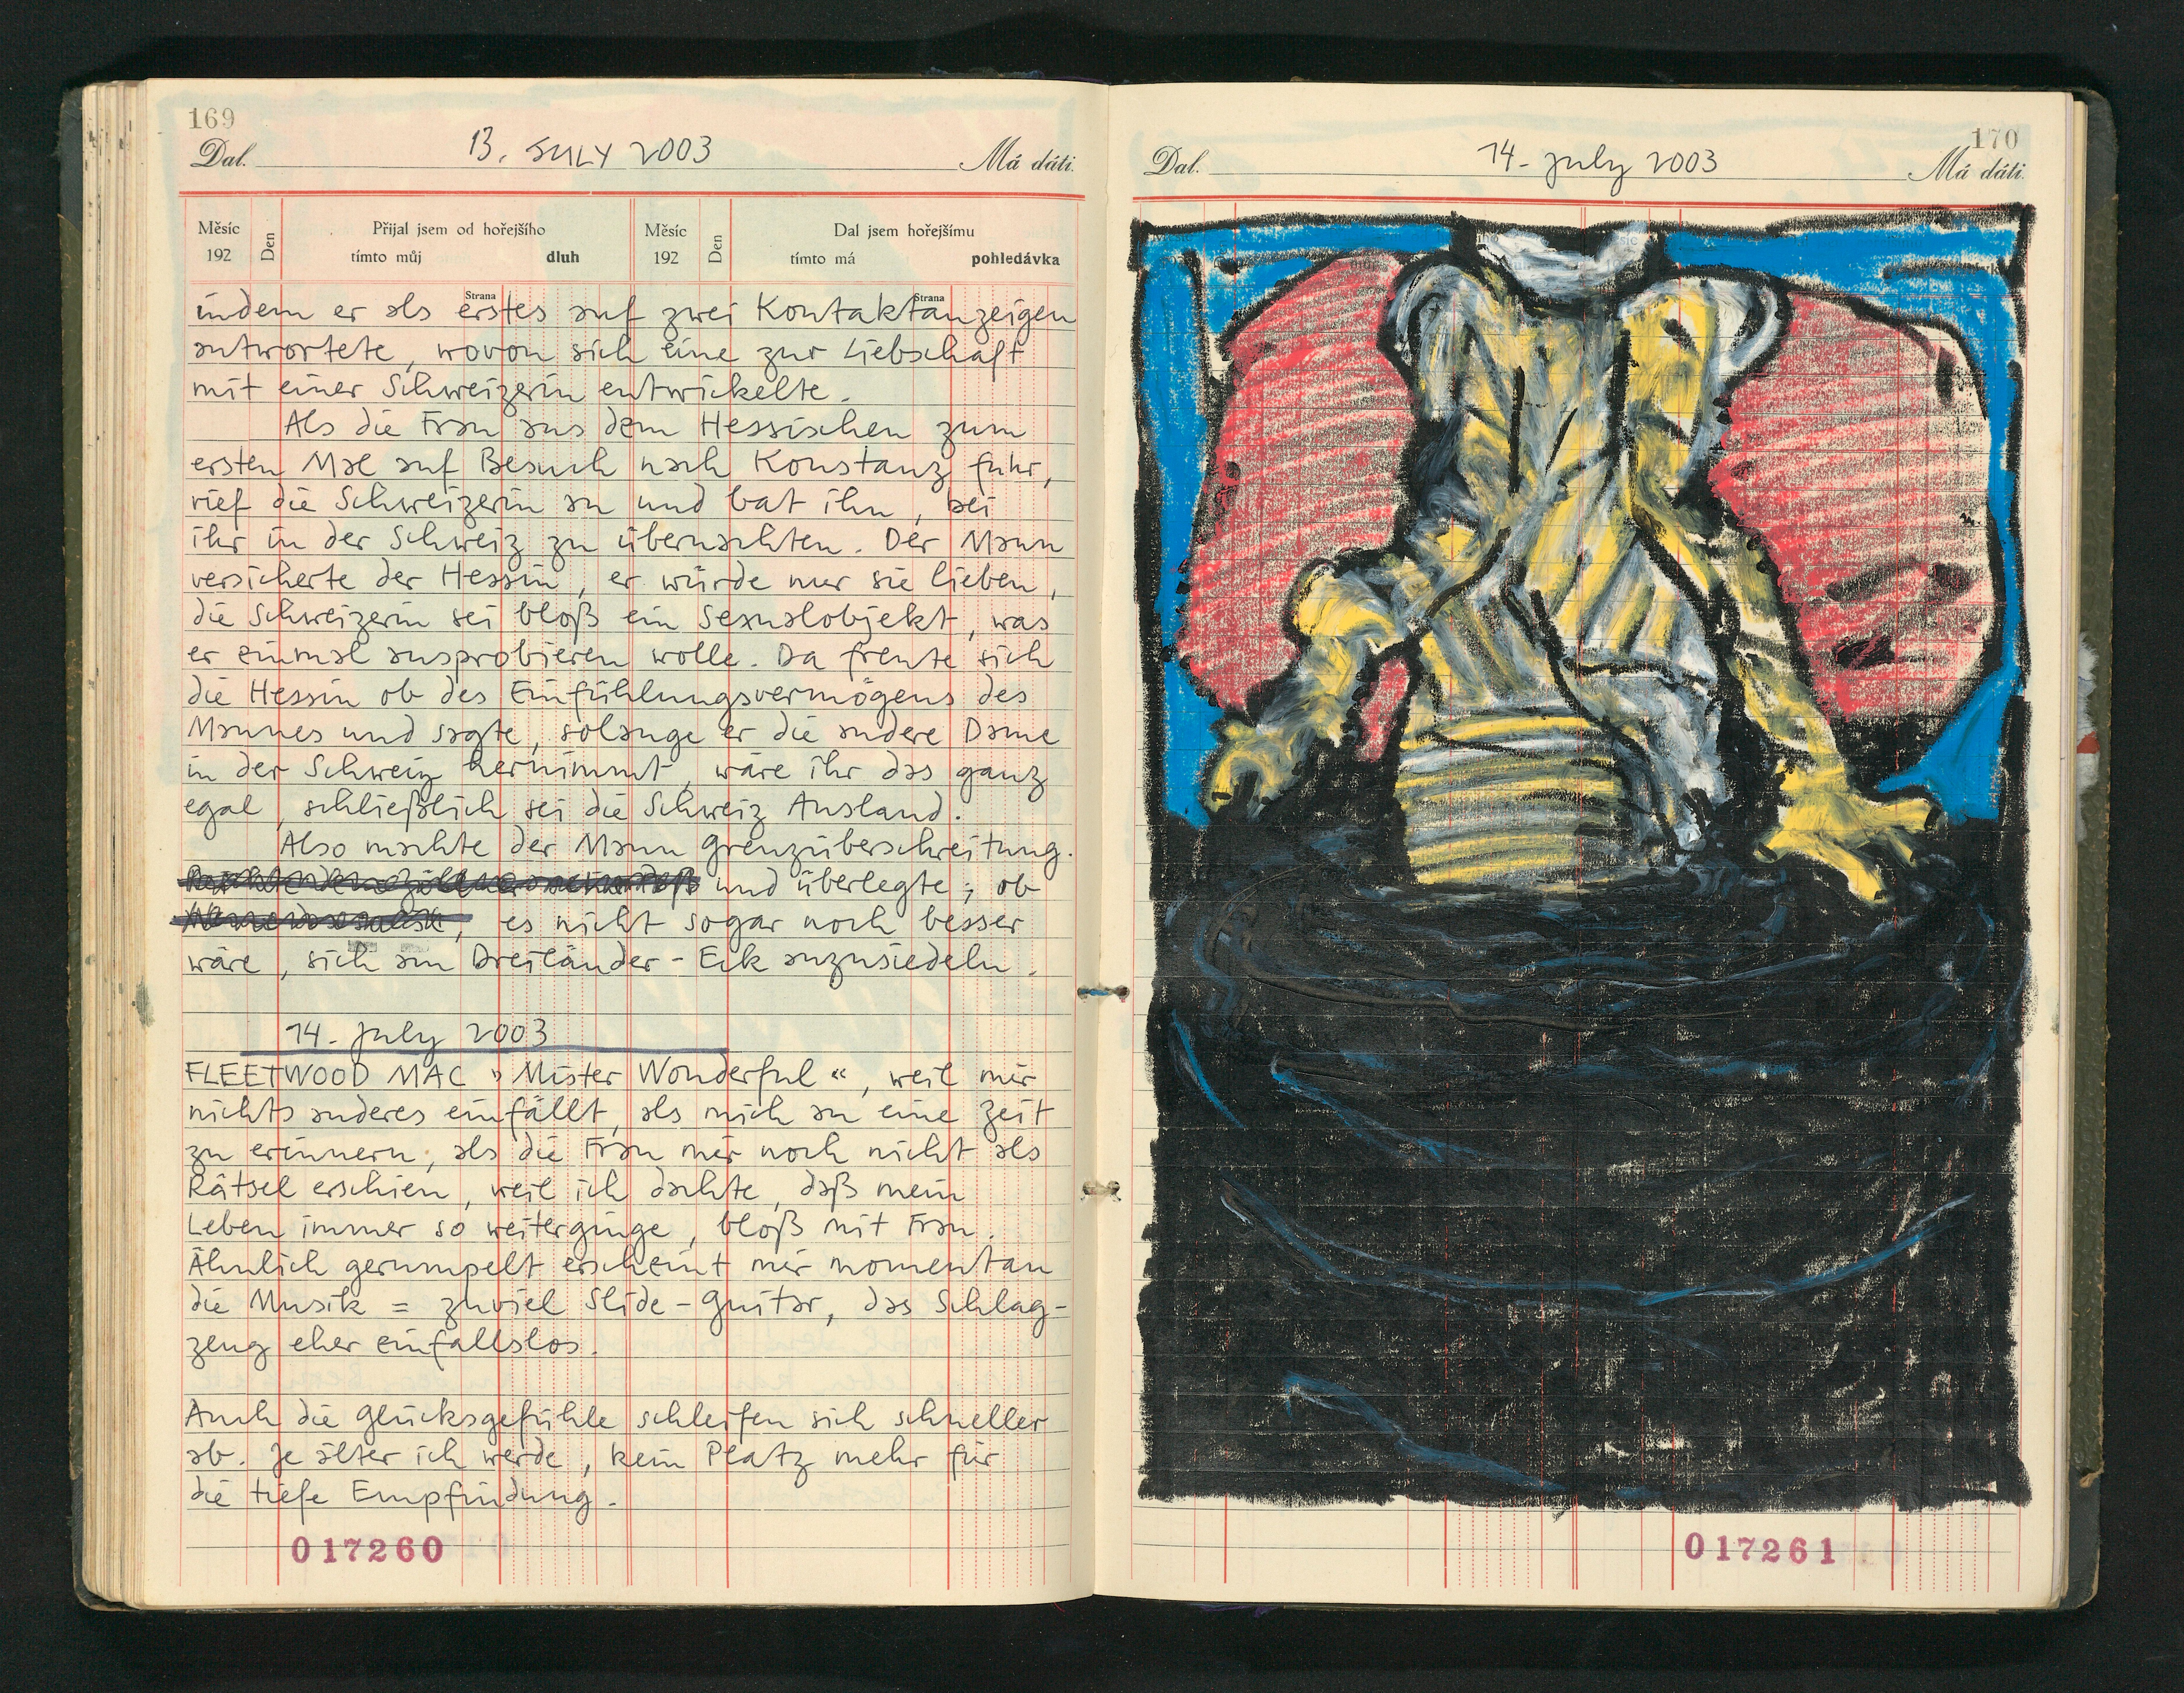 169
Dal. 13. JULY 2003 Má dáti.
Měsíc 192 Den Přijal jsem od hořejšího tímto můj dluh Strana Měsíc 192 Den Dal jsem hořejšímu tímto má pohledávka Strana
indem er als erstes auf zwei Kontaktanzeigen
antwortete, wovon sich eine zur Liebschaft
mit einer Schweizerin entwickelte.
Als die Frau aus dem Hessischen zum
ersten Mal auf Besuch nach Konstanz fuhr,
rief die Schweizerin an und bat ihn, bei
ihr in der Schweiz zu übernachten. Der Mann
versicherte der Hessin, er würde nur sie lieben,
die Schweizerin sei bloß ein Sexualobjekt, was
er einmal ausprobieren wolle. Da freute sich
die Hessin ob des Einfühlungsvermögens des
Mannes und sagte, solange er die andere Dame
in der Schweiz hernimmt, wäre ihr das ganz
egal, schließlich sei die Schweiz Ausland.
Also machte der Mann Grenzüberschreitung.
und überlegte, ob
, es nicht sogar noch besser
wäre, sich am Dreiländer-Eck anzusiedeln.
14. July 2003
FLEETWOOD MAC » Mister Wonderful «, weil mir
nichts anderes einfällt, als mich an eine Zeit
zu erinnern, als die Frau mir noch nicht als
Rätsel erschien, weil ich dachte, daß mein
Leben immer so weiterginge, bloß mit Frau.
Ähnlich gerumpelt erscheint mir momentan
die Musik = zuviel Slide-Guitar, das Schlag-
zeug eher einfallslos.
Auch die Glücksgefühle schleifen sich schneller
ab. Je älter ich werde, kein Platz mehr für
die tiefe Empfindung.
017260
170
Dal. 14. July 2003 Má dáti.
017261